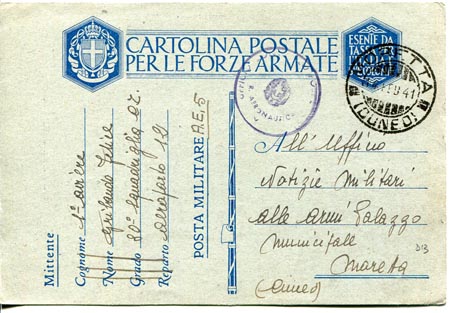 CARTOLINA POSTALE
PER LE FORZE ARMATE
ESENTE DA
TASSE
(CUNEO)
41
Mittente
Cognome 1° aviere
Nome Felice
Grado 80° squadriglia
Reparto Aeroporto 12
POSTA MILITARE A.E,5
All'Uffino
Notizie Militari
alle armi Palazzo
Municipale
(Cuneo)
D13